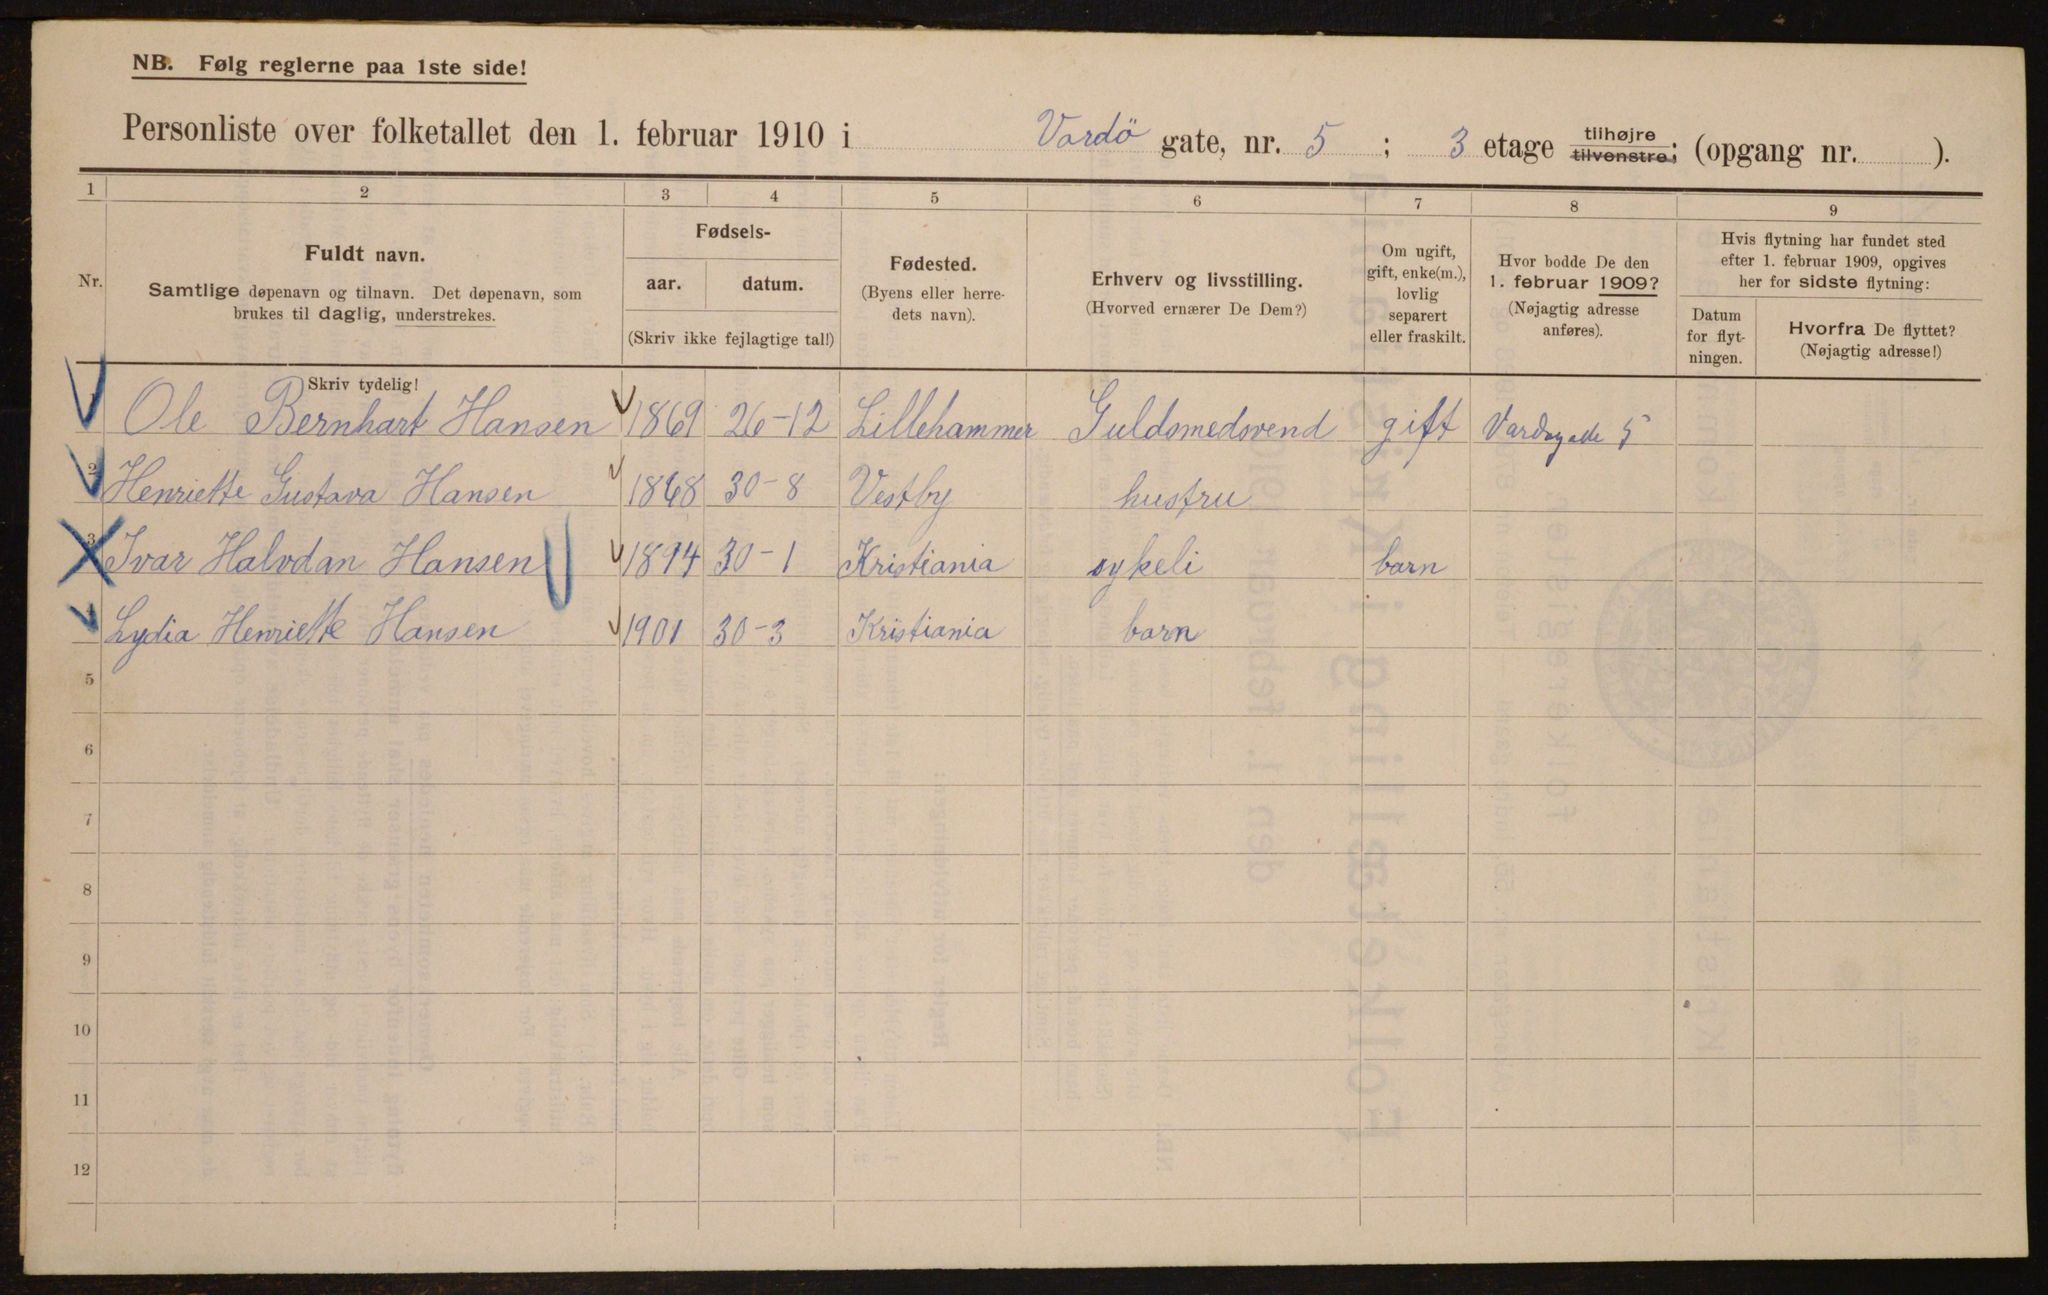 NB. Følg reglerne paa 1ste side!
Personliste over folketallet den 1. februar 1910 i Vardö gate, nr. 5 ; 3 etage tilhøjre tilvenstre; (opgang nr. ).
1 2 3 4 5 6 7 8 9
Nr.
Fuldt navn.
Samtlige døpenavn og tilnavn. Det døpenavn, som
brukes til daglig, understrekes.
Fødsels-
aar. datum.
(Skriv ikke fejlagtige tal!)
Fødested.
(Byens eller herre-
dets navn).
Erhverv og livsstilling.
(Hvorved ernærer De Dem?)
Om ugift,
gift, enke(m.),
lovlig
separert
eller fraskilt.
Hvor bodde De den
1. februar 1909?
(Nøjagtig adresse
anføres).
Hvis flytning har fundet sted
efter 1. februar 1909, opgives
her for sidste flytning:
Datum
for flyt-
ningen.
Hvorfra De flyttet?
(Nøjagtig adresse!)
Skriv tydelig!
Ole Bernhart Hansen 1869 26-12 Lillehammer Guldsmedsvend gift Vardøgade 5
2 Henriette Gustava Hansen 1868 30-8 Vestby hustru
3 Ivar Halvdan Hansen 1894 30-1 Kristiania sykeli barn
4 Lydia Henriette Hansen 1901 30-3 Kristiania barn
5
6
7
8
9
10
11
12